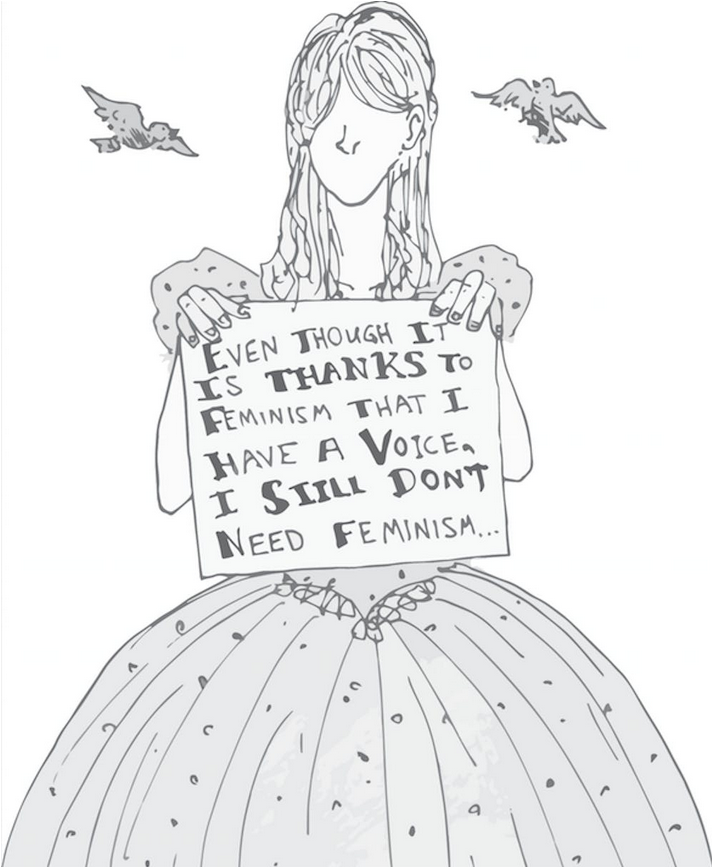 EVEN THOUGH IT
IS THANKS TO
FEMINISM THAT I
HAVE A VOICE,
I STILL DONT
NEED FEMINISM...